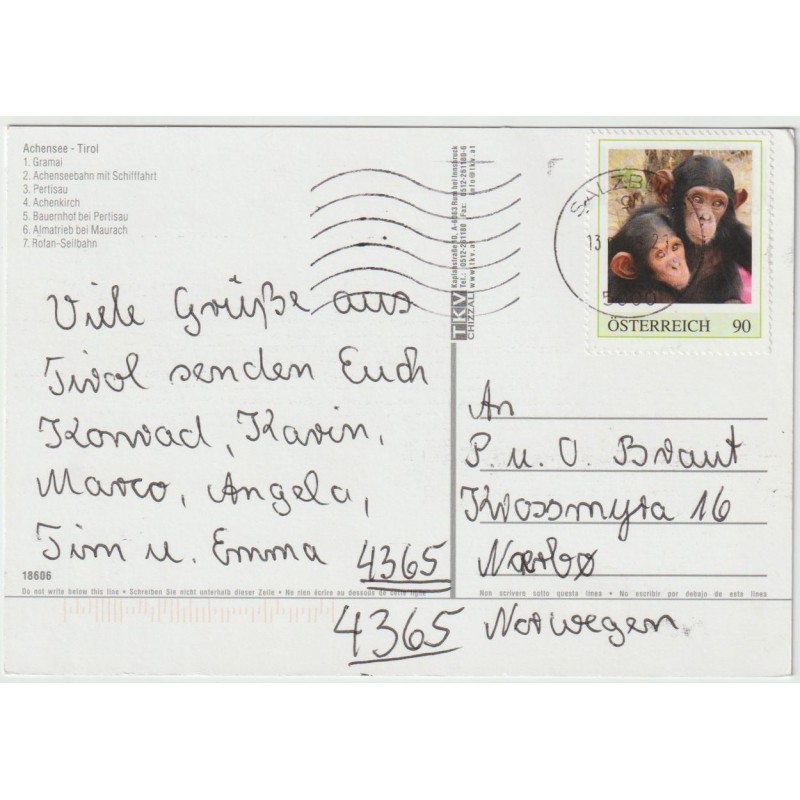 Achensee - Tirol
1. Gramai
2. Achenseebahn mit Schifffahrt
3. Pertisau
4. Achenkirch
5. Bauernhof bei Pertisau
6. Almatrieb bei Maurach
7. Rofan-Seilbahn
Viele Grüße aus
Tirol senden Euch
Konrad, Karin,
Marco, Angela,
Tim u. Emma 4365
4365
18606
Do not write below this line • Schreiben Sie nicht unterhalb dieser Zeile • Ne rien écrire au dessous de cette ligne
TKV
CHIZZALI
Kaplanstraße 10, A-6063 Rum bei Innsbruck
Tel.: 0512-261180 Fax: 0512-261180-6
www.tkv.at info@tkv.at
SALZB
13
ÖSTERREICH 90
An
P. u. O. Braut
Krossmyra 16
Nærbø
Norwegen
Non scrivere sotto questa linea • No escribir por debajo de esta linea